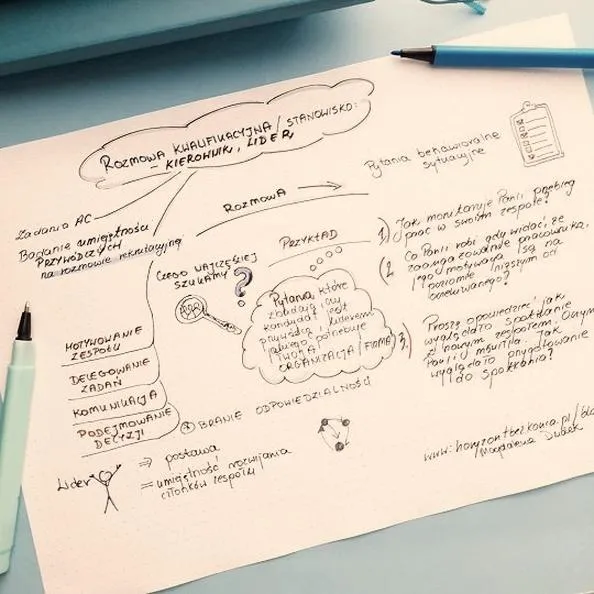 ROZMOWA KWALIFIKACYJNA / STANOWISKO:
- KIEROWNIK, LIDER,
Zadania AC
Badanie umiejętności
PRZYWÓDCZYCH
na rozmowie rekrutacyjnej
ROZMOWA
Pytania behawioralne
sytuacyjne
CZEGO NAJCZĘŚCIEJ
SZUKAMY
?
PRZYKŁAD
Pytania, które
zbadają czy
kandydat jest
przywódcą i liderem
jakiego potrzebuje
TWOJA
ORGANIZACJA / FIRMA
1) Jak monitoruje Pan/i przebieg
prac w swoim zespole?
2. Co Pan/i robi gdy widać, że
zaangażowanie pracownika,
jego motywacja są na
poziomie niższym od
oczekiwanego?
3. Proszę opowiedzieć jak
wyglądało spotkanie
z nowym zespołem. O czym
Pan/i mówił/a. Jak
wyglądało przygotowanie
do spotkania?
MOTYWOWANIE
ZESPOŁU
DELEGOWANIE
ZADAŃ
KOMUNIKACJA
PODEJMOWANIE
DECYZJI
BRANIE ODPOWIEDZIALNOŚCI
Lider
⇒ postawa
= umiejętność rozwijania
członków zespołu
www.horyzontbezkonca.pl/blo
/Magdalena Dudek